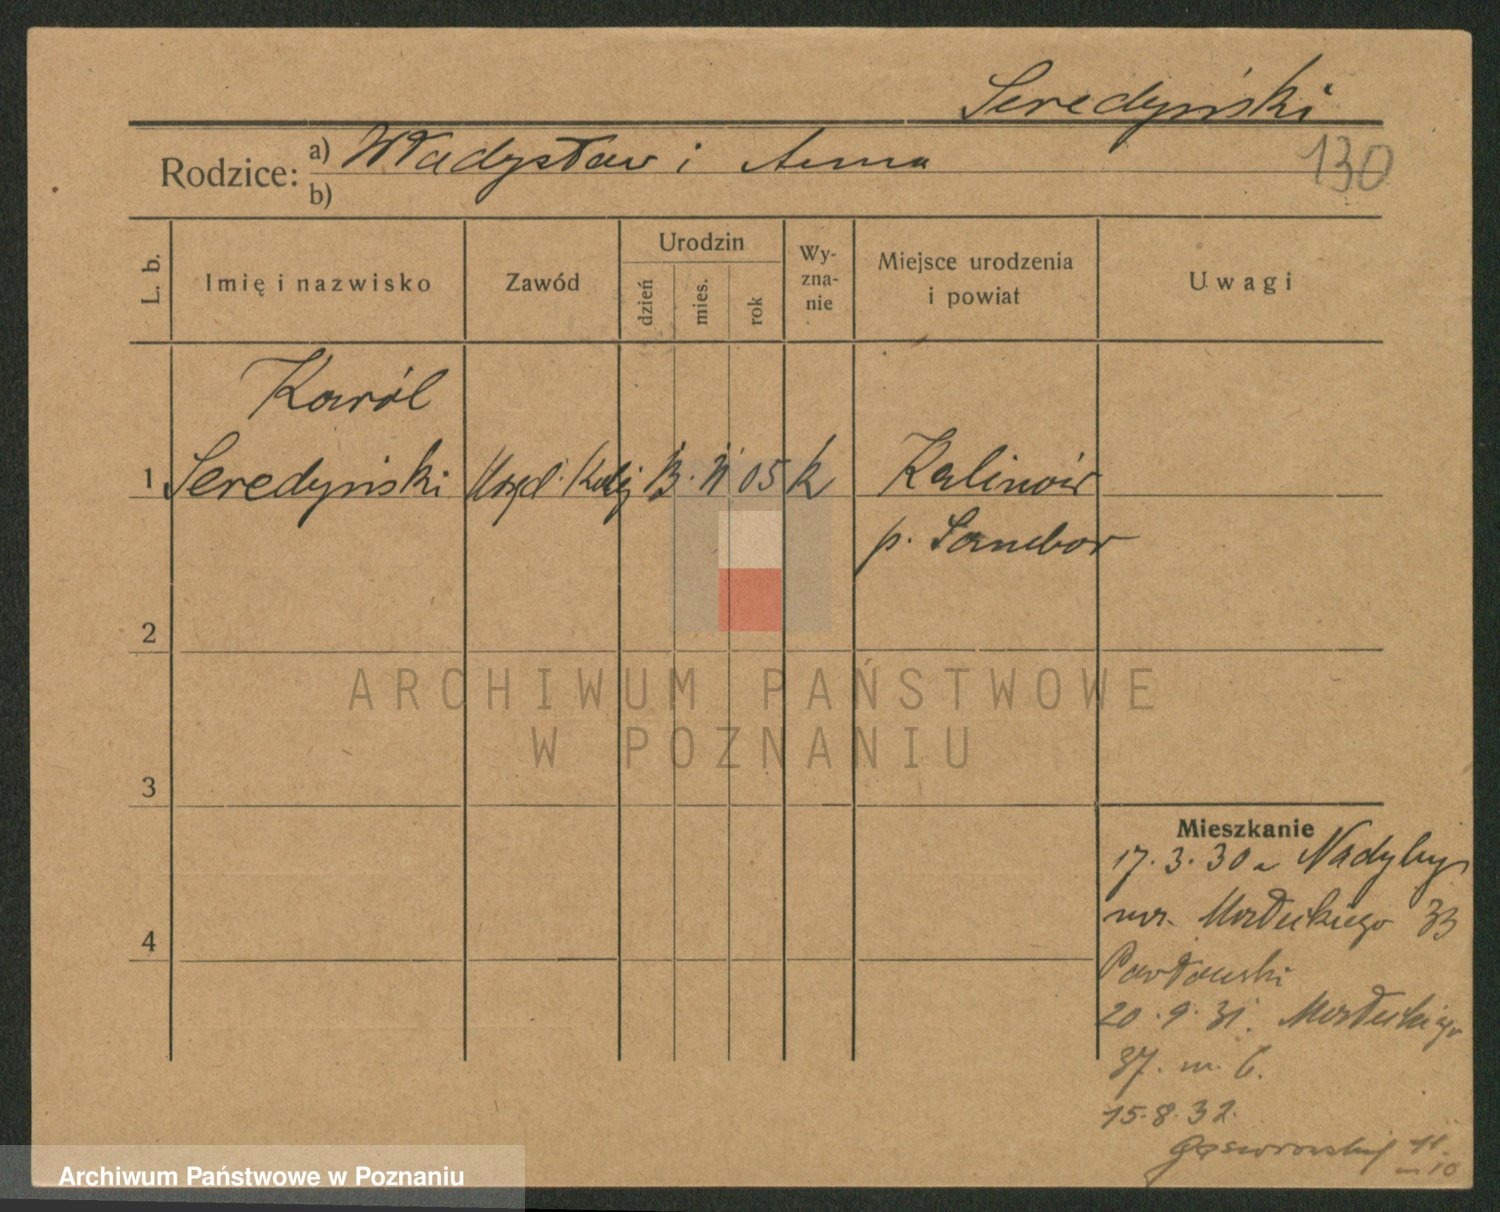 Seredyński
130
Rodzice: a) Władysław i Anna
b)
L. b.
Imię i nazwisko
Zawód
Urodzin
dzień
mies.
rok
Wy-
zna-
nie
Miejsce urodzenia
i powiat
Uwagi
Karól
1 Seredyński Urzęd. Kolej 05 k Kalinów
p. Sambor
2
ARCHIWUM PAŃSTWOWE
W POZNANIU
3
Mieszkanie
17. 3. 30 z Nadyby
33
4
Pawłowski
20. 9. 31.
37. m. 6.
15. 8. 32.
Gąsiorowskich 11
m 10
Archiwum Państwowe w Poznaniu